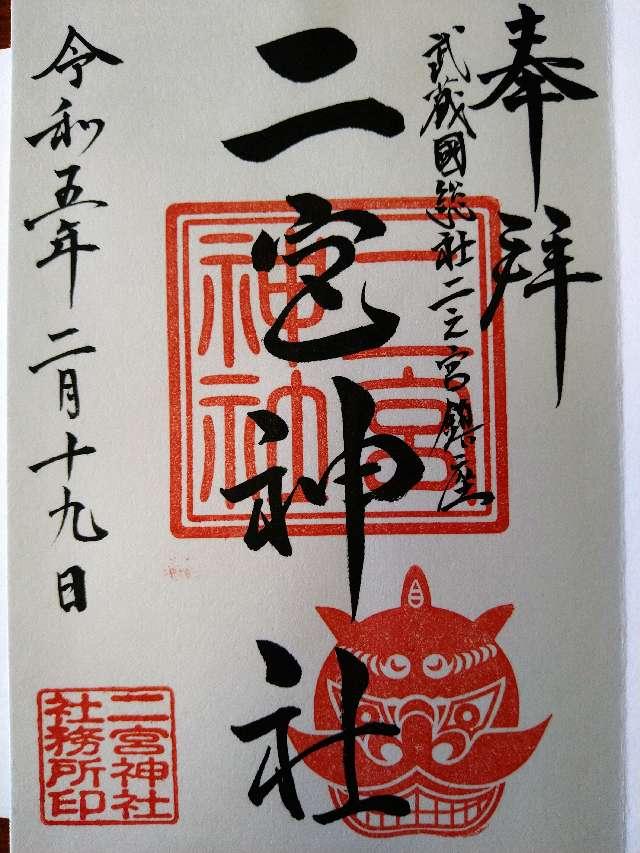 奉拝
武蔵國総社二之宮鎮座
二宮神社
令和五年二月十九日
二宮
神社
二宮神社
社務所印